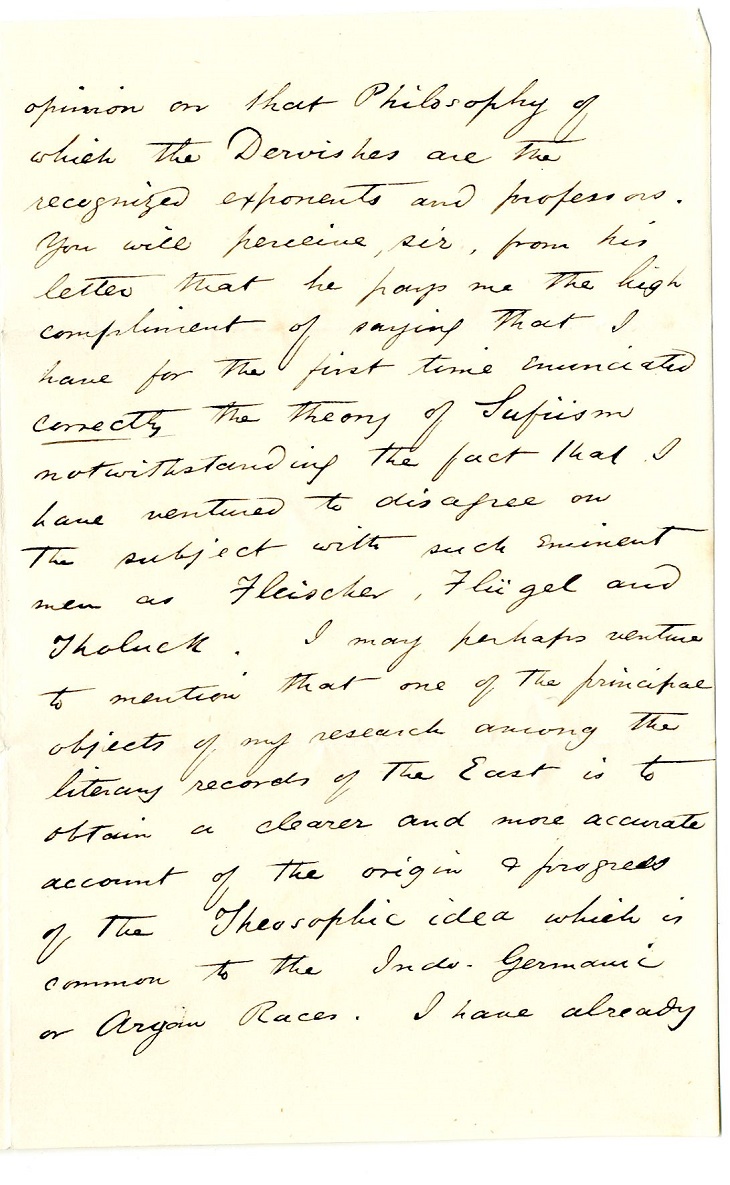 opinion on that Philosophy of
which the Dervishes are the
recognized exponents and professors.
You will perceive, sir, from his
letter that he pays me the high
compliment of saying that I
have for the first time enunciated
correctly the theory of Sufiism
notwithstanding the fact that I
have ventured to disagree on
the subject with such eminent
men as Fleischer, Flügel and
Tholuck. I may perhaps venture
to mention that one of the principal
objects of my research among the
literary records of the East is to
obtain a clearer and more accurate
account of the origin & progress
of the Theosophic idea which is
common to the Indo-Germanic
or Aryan Races. I have already